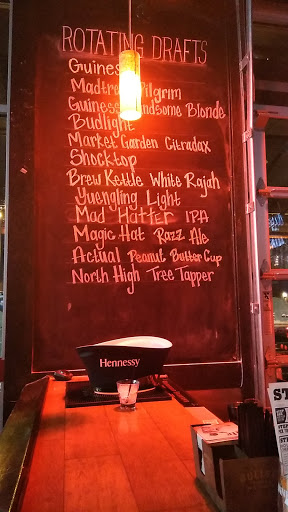 ROTATING DRAFTS
Guiness
Madtree Pilgrim
Guiness Handsome Blonde
Budlight
Market Garden Citradax
Shocktop
Brew Kettle White Rajah
Yuengling Light
Mad Hatter IPA
Magic Hat Razz Ale
Actual Peanut Butter Cup
North High Tree Tapper
Hennessy